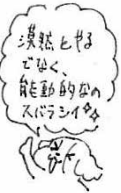 漠然とやる
でなく、
能動的なの
スバラシイ